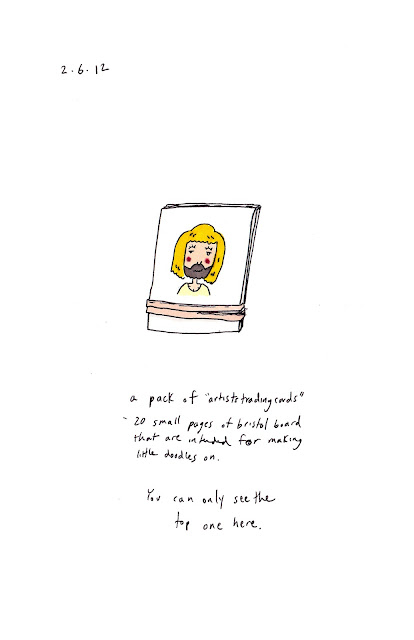 2.6.12
a pack of "artists trading cards"
- 20 small pages of bristol board
that are intended for making
little doodles on.
You can only see the
top one here.